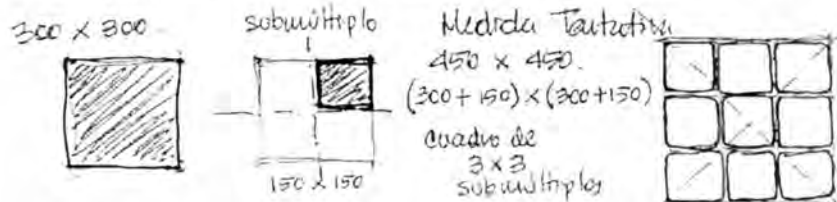 300 x 300
submúltiplo
150 x 150
Medida Tentativa
450 x 450.
(300+150) x (300+150)
cuadro de
3 x 3
submúltiplos